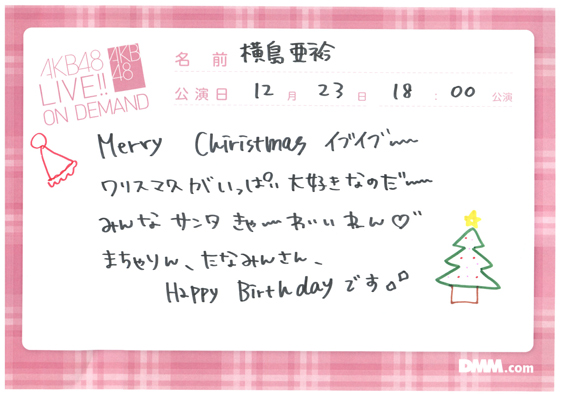 AKB48
LIVE!!
ON DEMAND
AKB
48
名 前 横島亜衿
公演日 12 月 23 日 18 : 00 公演
Merry Chiristmas イブイブ〜
クリスマスがいっぱい大好きなのだ〜
みんな サンタ きゃ〜わいいれん♡
まちゃりん、たなみんさん、
Happy Birthday です。
DMM.com